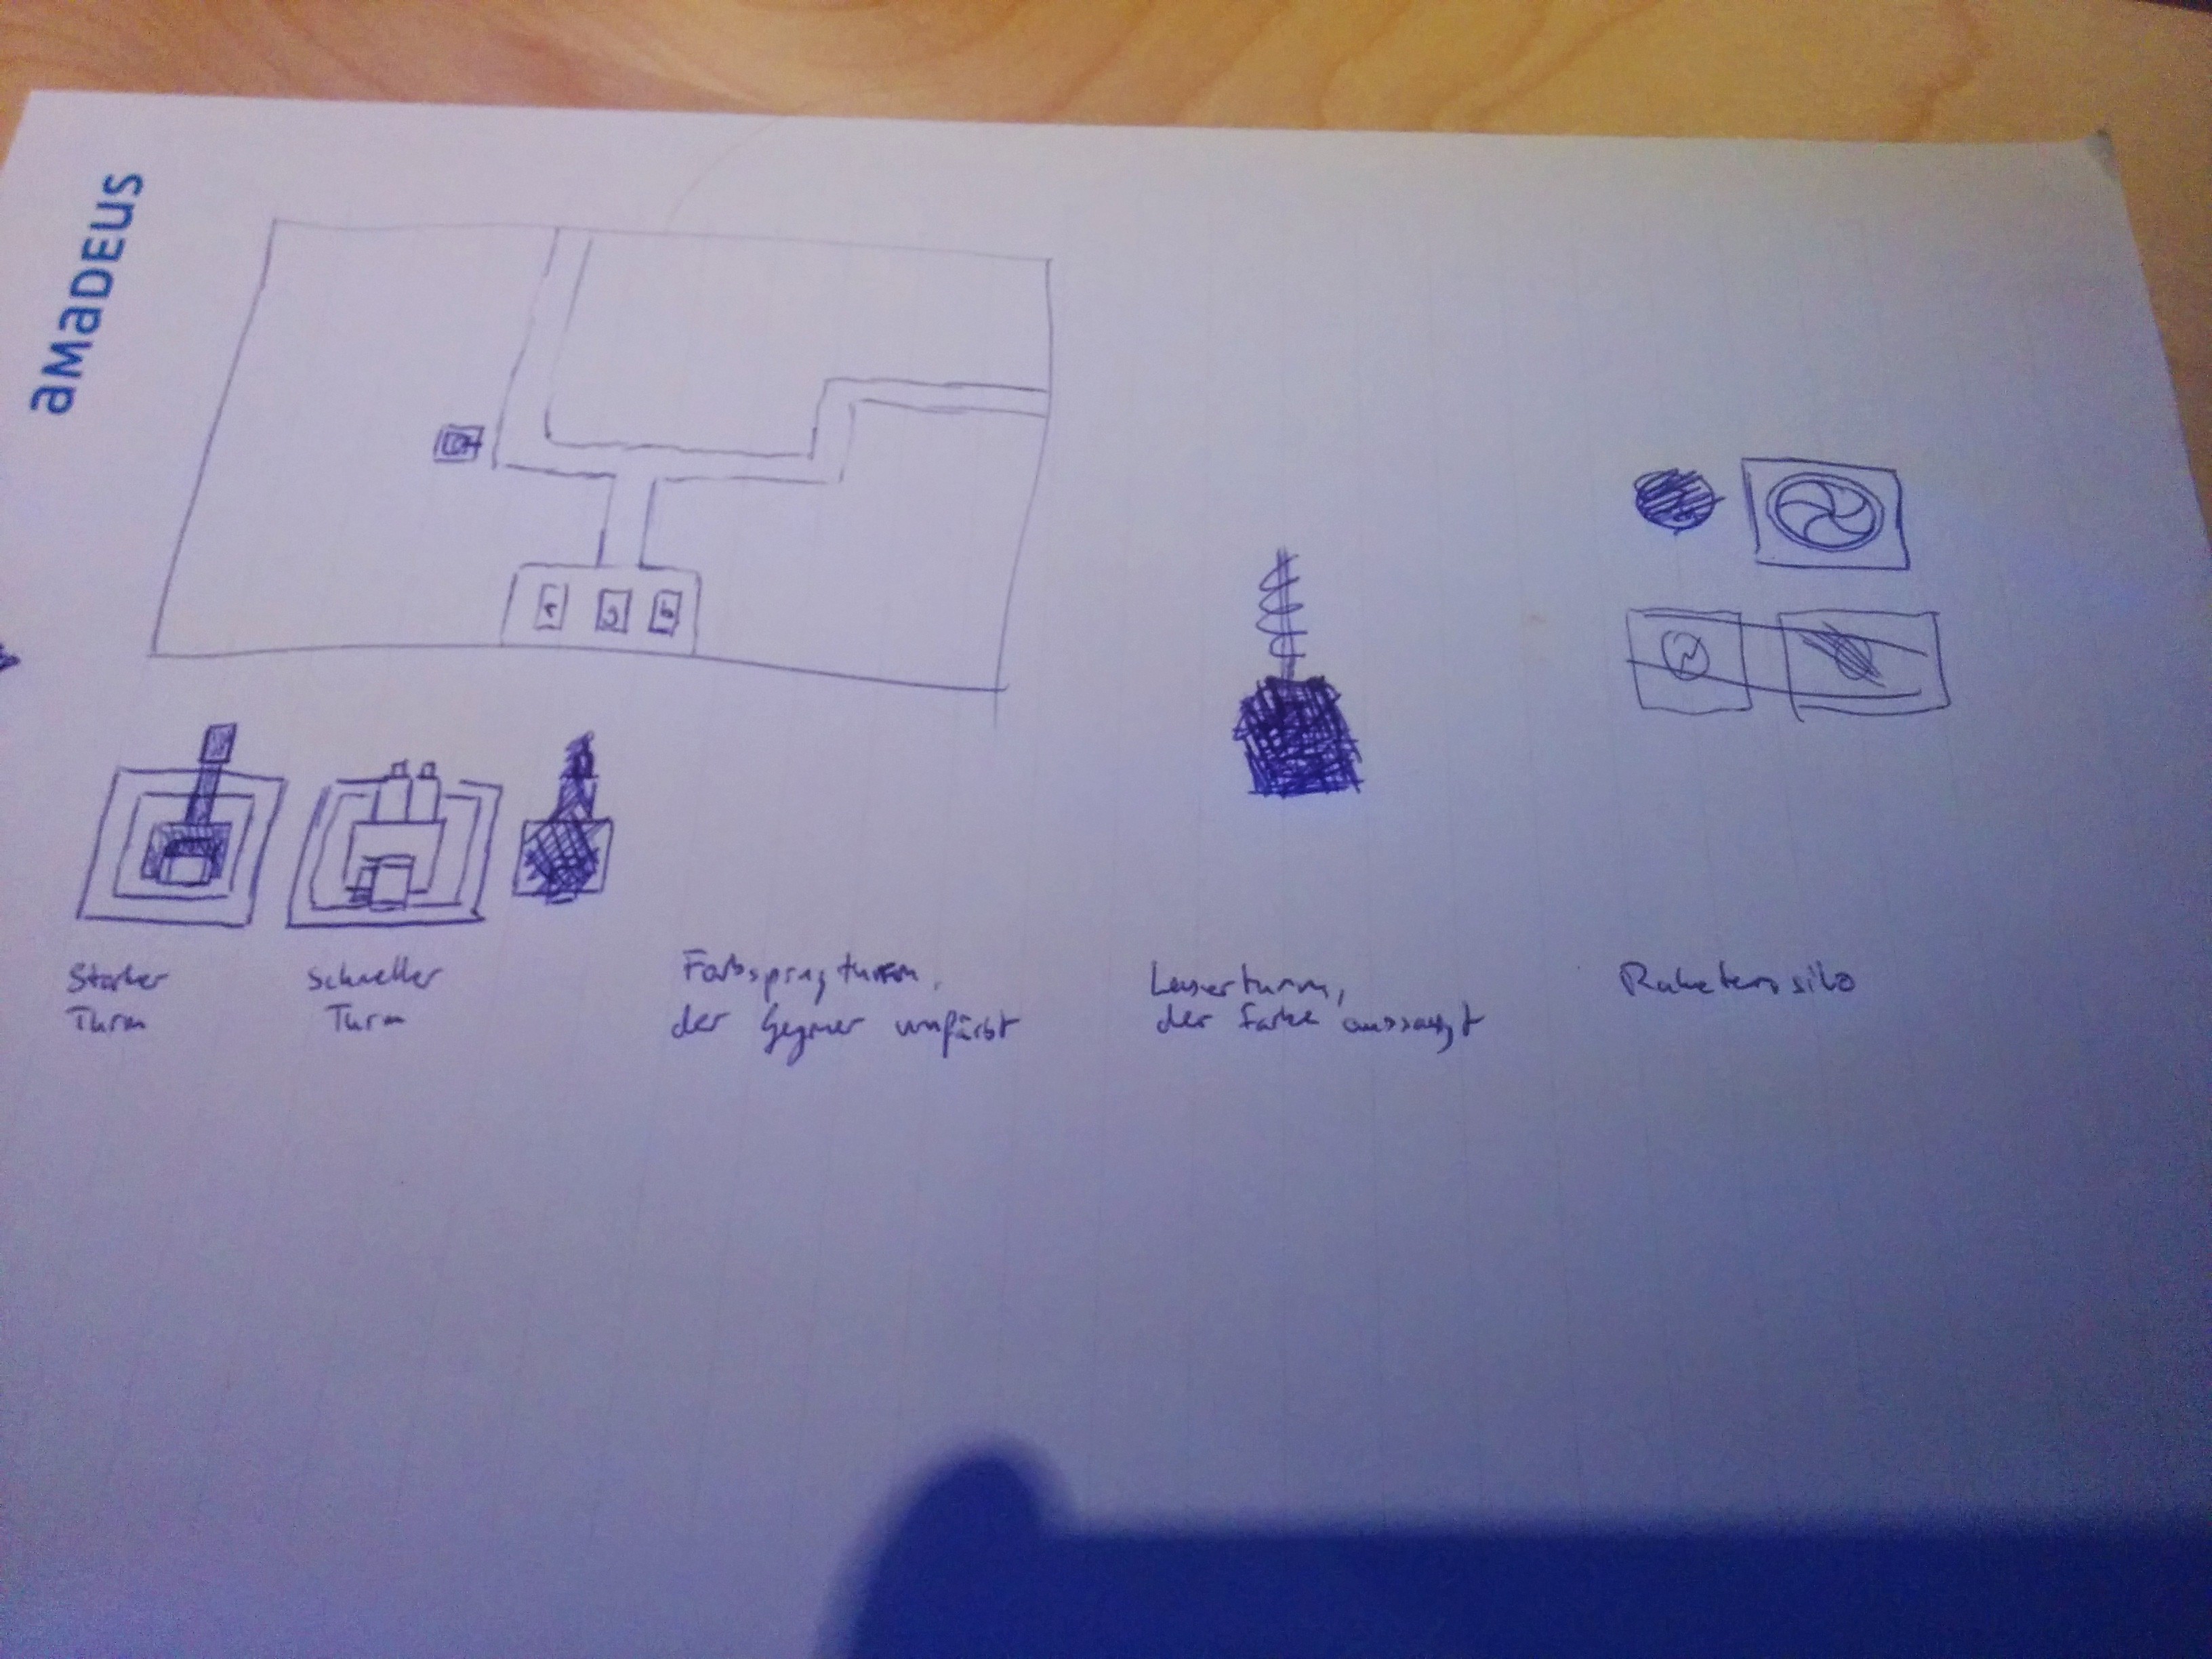 amadeus
Starker
Turm
Schneller
Turm
Farbsprayturm,
der Gegner umfärbt
Laserturm,
der Farbe aussaugt
Raketensilo